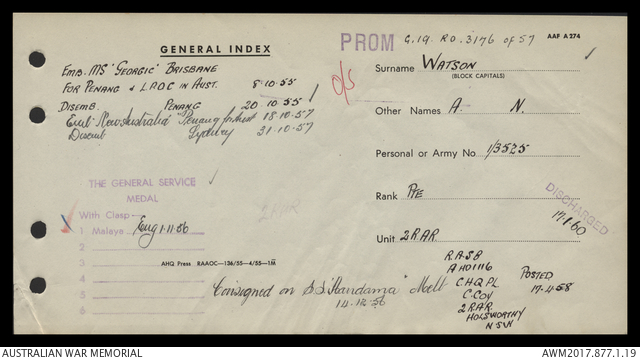 GENERAL INDEX
PROM C.19. RO. 3176 of 57 AAF A 274
EMB. MS "GEORGIC" BRISBANE
FOR PENANG & LAOC IN AUST. 8.10.55
DISEMB. PENANG 20.10.55
Emb "New Australia" Penang for Aust 18.10.57
Disemb Sydney 31.10.57
O/S
Surname WATSON
(BLOCK CAPITALS)
Other Names A. N.
Personal or Army No. 1/3525
Rank PTE
Unit 2 RAR.
DISCHARGED
17.1.60
THE GENERAL SERVICE
MEDAL
With Clasp
1 Malaya Eng 1.11.56
2
3
4
5
6
2RAR
AHQ Press RAAOC—136/55—4/55—1M
Consigned on S.S. "Kandama" Melb
14.12.56
R.A.S.B
AHD1116
C HQ PL
C. COY
2 RAR
HOLSWORTHY
N.S.W
POSTED
17.4.58
AUSTRALIAN WAR MEMORIAL AWM2017.877.1.19